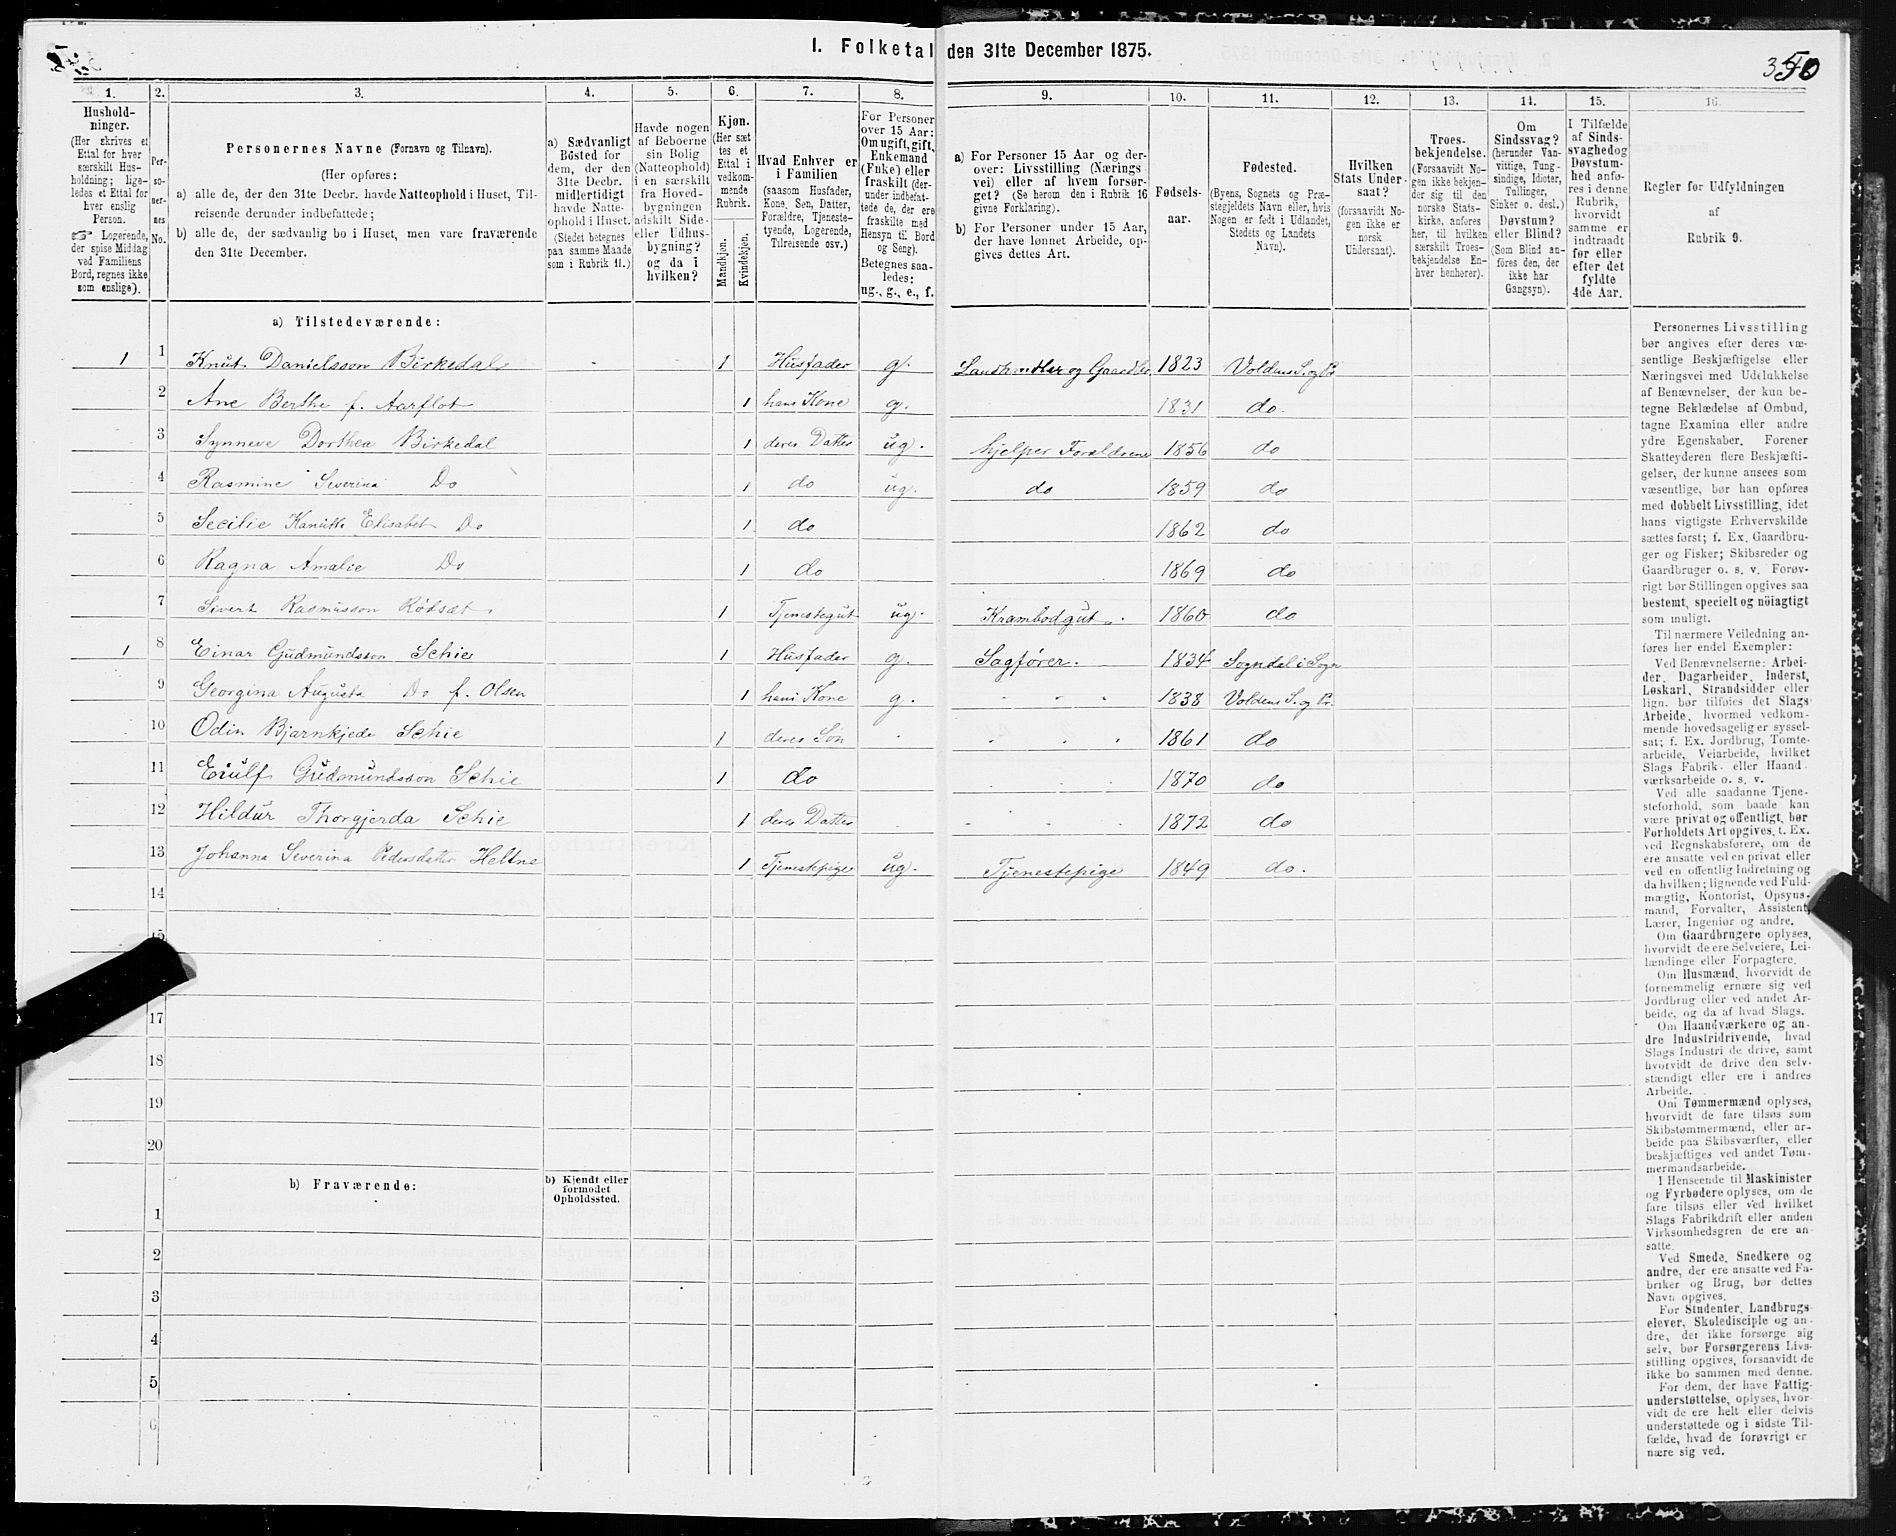 I. Folketal den 31te December 1875.
350
1. 2. 3. 4. 5. 6. 7. 8. 9. 10. 11. 12. 13. 14. 15. 16.
Hushold-
ninger.
(Her skrives et
Ettal for hver
særskilt Hus-
holdning; lige-
ledes et Ettal for
hver enslig
Person.
☞ Logerende,
der spise Middag
ved Familiens
Bord, regnes ikke
som enslige).
Per-
so-
ner-
nes
No.
Personernes Navne (Fornavn og Tilnavn).
(Her opføres:
a) alle de, der den 31te Decbr. havde Natteophold i Huset, Til-
reisende derunder indbefattede;
b) alle de, der sædvanlig bo i Huset, men vare fraværende
den 31te December.
a) Sædvanligt
Bosted for
dem, der den
31te Decbr.
midlertidigt
havde Natte-
ophold i Huset.
(Stedet betegnes
paa samme Maade
som i Rubrik 11.)
Havde nogen
af Beboerne
sin Bolig
(Natteophold)
i en særskilt
fra Hoved-
bygningen
adskilt Side-
eller Udhus-
bygning?
og da i
hvilken?
Kjøn.
(Her sæt
tes et
Ettal i
vedkom-
mende
Rubrik.
Mandkjøn.
Kvindekjøn.
Hvad Enhver er
i Familien
(saasom Husfader,
Kone, Søn, Datter,
Forældre, Tjeneste-
tyende, Logerende,
Tilreisende osv.)
For Personer
over 15 Aar:
Om ugift, gift,
Enkemand
(Enke) eller
fraskilt (der-
under indbefat-
tede de, der ere
fraskilte med
Hensyn til Bord
og Seng).
Betegnes saa-
ledes:
ug., g., e., f.
a) For Personer 15 Aar og der-
over: Livsstilling (Nærings
vei) eller af hvem forsør-
get? (Se herom den i Rubrik 16
givne Forklaring).
b) For Personer under 15 Aar,
der have lønnet Arbeide, op-
gives dettes Art.
Fødsels-
aar.
Fødested.
(Byens, Sognets og Præ-
stegjeldets Navn eller, hvis
Nogen er født i Udlandet,
Stedets og Landets
Navn).
Hvilken
Stats Under-
saat?
(forsaavidt No-
gen ikke er
norsk
Undersaat).
Troes-
bekjendelse.
(Forsaavidt No-
gen ikke bekjen-
der sig til den
norske Stats-
kirke, anføres
her, til hvilken
særskilt Troes-
bekjendelse En-
hver henhører).
Om
Sindssvag?
(herunder Van-
vittige, Tung-
sindige, Idioter,
Tullinger,
Sinker o. desl.)
Døvstum?
eller Blind?
(Som Blind an-
føres den, der
ikke har
Gangsyn).
I Tilfælde
af Sinds-
svaghed og
Døvstum-
hed anfø-
res i denne
Rubrik,
hvorvidt
samme er
indtraadt
før eller
efter det
fyldte
4de Aar.
Regler for Udfyldningen
af
Rubrik 9.
a) Tilstedeværende:
1 1 Knut Danielsson Birkedal 1 Husfader g. Landhandler og Gaardbr. 1823 Voldens S. og Pr
2 Ane Berthe f. Aarflot 1 hans Kone g. 1831 do.
3 Synneve Dorthea Birkedal 1 deres Datter ug. hjelper Forældrene 1856 do
4 Rasmine Severina Do 1 do ug. do 1859 do
5 Secilie Kanutte Elisabet Do 1 do 1862 do
6 Ragna Amalie Do 1 do 1869 do
7 Sivert Rasmusson Rødsæt 1 Tjenestegut ug. Krambodgut 1860 do
1 8 Einar Gudmundsson Schie 1 Husfader g. Sagfører. 1834 Sogndal i Sogn
9 Georgina Augusta Do f. Olsen 1 hans Kone g. 1838 Voldens S. og Pr.
10 Odin Bjarnkjede Schie 1 deres Søn 1861 do
11 Eiulf Gudmundsson Schie 1 do 1870 do
12 Hildur Thorgjerda Schie 1 deres Datter 1872 do
13 Johanna Severina Pedersdatter Heltne 1 Tjenestepige ug. Tjenestepige 1849 do.
14
15
17
18
19
20
b) Fraværende:
b) Kjendt eller
formodet
Opholdssted.
1
2
3
4
5
6
Personernes Livsstilling
bør angives efter deres væ-
sentlige Beskjæftigelse eller
Næringsvei med Udelukkelse
af Benævnelser, der kun be-
tegne Beklædelse af Ombud,
tagne Examina eller andre
ydre Egenskaber. Forener
Skatteyderen flere Beskjæfti-
gelser, der kunne ansees som
væsentlige, bør han opføres
med dobbelt Livsstilling, idet
hans vigtigste Erhvervskilde
sættes først; f. Ex. Gaardbru-
ger og Fisker; Skibsreder og
Gaardbruger o. s. v. Forøv-
rigt bør Stillingen opgives saa
bestemt, specielt og nöiagtigt
som muligt.
Til nærmere Veiledning an-
føres her endel Exempler:
Ved Benævnelserne: Arbei-
der, Dagarbeider, Inderst,
Løskarl, Strandsidder eller
lign. bør tilføies det Slags
Arbeide, hvormed vedkom-
mende hovedsagelig er syssel-
sat; f. Ex. Jordbrug, Tomte-
arbeide, Veiarbeide, hvilket
Slags Fabrik- eller Haand
værksarbeide o. s. v.
Ved alle saadanne Tjene-
steforhold, som baade kan
være privat og offentligt, bør
Forholdets Art opgives, t. Ex.
ved Regnskabsførere, om de
ere ansatte ved en privat eller
ved en offentlig Indretning og
da hvilken; lignende ved Fuld-
mægtig, Kontorist, Opsyns-
mand, Forvalter, Assistent,
Lærer, Ingeniør og andre.
Om Gaardbrugere oplyses,
hvorvidt de ere Selveiere, Lei-
lændinge eller Forpagtere.
Om Husmænd, hvorvidt de
fornemmelig ernære sig ved
Jordbrug eller ved andet Ar-
beide, og da af hvad Slags.
Om Haandværkere og an-
dre Industridrivende, hvad
Slags Industri de drive, samt
hvorvidt de drive den selv-
stændigt eller ere i andres
Arbeide.
Om Tømmermænd oplyses,
hvorvidt de fare tilsøs som
Skibstømmermænd, eller ar-
beide paa Skibsværfter, eller
beskjæftiges ved andet Tøm-
mermandsarbeide.
I Henseende til Maskinister
og Fyrbødere oplyses, om de
fare tilsøs eller ved hvilket
Slags Fabrikdrift eller anden
Virksomhedsgren de ere an-
satte.
Ved Smede, Snedkere og
andre, der ere ansatte ved Fa-
briker og Brug, bør dettes
Navn opgives.
For Studenter, Landbrugs-
elever, Skoledisciple og an-
dre, der ikke forsørge sig
selv, bør Forsørgerens Livs-
stilling opgives, forsaavidt de
ikke bo sammen med denne.
For dem, der have Fattig-
understøttelse, oplyses, hvor-
vidt de ere helt eller delvis
understøttede og i sidste Til-
fælde, hvad de forøvrigt er
nære sig ved.